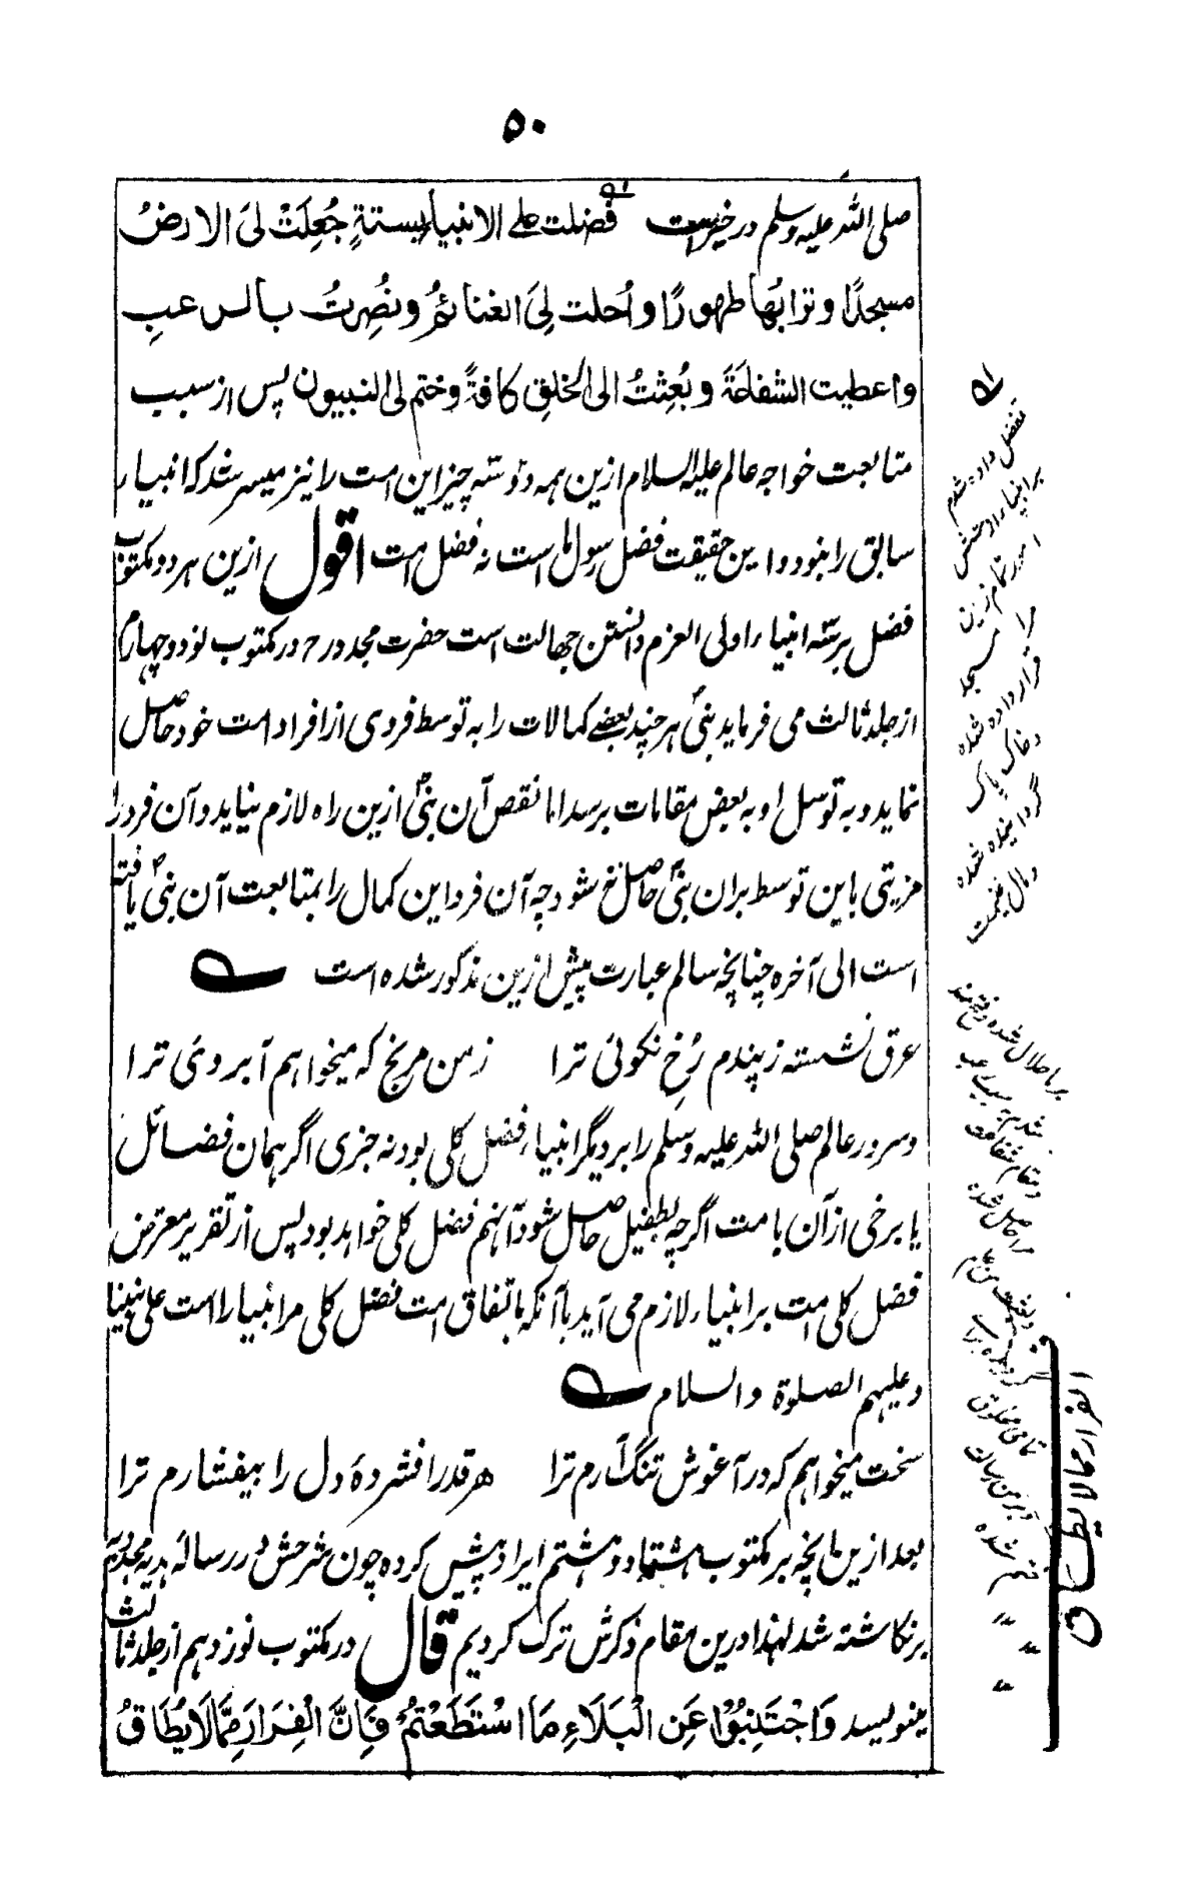 ۵۰
صلی الله علیه وسلم در خبر است فضلت علی الانبیاء بستةٍ جُعِلَتْ لیَ الارضُ
مسجدًا و ترابُها طهورًا و اُحلت لِیَ الغنائمُ و نُصِرتُ بالرعبِ
و اعطیت الشفاعَةَ و بُعِثتُ الی الخلقِ کافةً و ختم لی النبیون پس از سبب
متابعت خواجه عالم علیه السلام ازین همه دو سه چیز این امت را نیز میسر شد که انبیاء
سابق را نبود و این حقیقت فضل رسول ما است نه فضل امت اقول ازین هر دو مکتوب
فضل بر سته انبیاء اولی العزم دانستن جهالت است حضرت مجدد رح در مکتوب نود و چهارم
از جلد ثالث می فرماید نبیؐ هر چند بعضے کمالات را به توسط فردی از افراد امت خود حاصل
نماید و به توسل او به بعض مقامات برسد اما نقص آن نبیؐ ازین راه لازم نیاید و آن فرد را
مزیتی باین توسط بران نبیؐ حاصل نمی شود چه آن فرد این کمال را بمتابعت آن نبیؐ یافته
است الی آخره چنانچه سالم عبارت پیش ازین مذکور شده است
عرق نشسته ز پندم رُخِ نکوئی ترا زمن مرنج که میخواهم آبروئ ترا
و سرور عالم صلی الله علیه وسلم را بر دیگر انبیاء فضل کلی بود نه جزی اگر همان فضائل
یا برخی از آن بامت اگرچه بطفیل حاصل شود آنهم فضل کلی خواهد بود پس از تقریر معترض
فضل کلی امت بر انبیاء لازم می آید با آنکه باتفاق امت فضل کلی مر انبیا را است علی نبینا
و علیهم الصلوة والسلام
سخت میخواهم که در آغوش تنگ آرم ترا هر قدر افشردهٔ دل را بیفشارم ترا
بعد ازین آنچه بر مکتوب هشتاد و هشتم ایراد پیش کرده چون شرحش در رسالهٔ هدیه مجددیه
برنگاشته شد لهذا درین مقام ذکرش ترک کردیم قال در مکتوب نوزدهم از جلد ثالث
مینویسد وَاجْتَنِبُوْا عَنِ الْبَلَاءِ مَا اسْتَطَعْتُمْ فَاِنَّ الْفِرَارَ مِمَّا لَا یُطَاقُ
تفضل داده شدم
بر انبیاء را و شش
امور تمام زمین
مرا مسجد
قرار داده شده
و خاک پاک
گردانیده شده
و مال غنیمت
الفرار مما لا یطاق